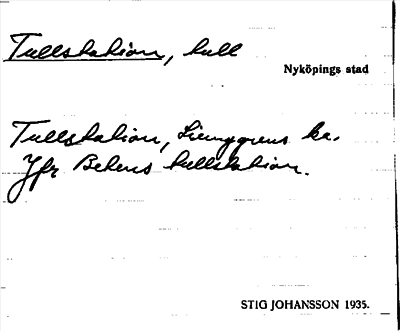 Tullstation, tull
Nyköpings stad
Tullstation, Ljunggrens ka.
Jfr Behms tullstation.
STIG JOHANSSON 1935.